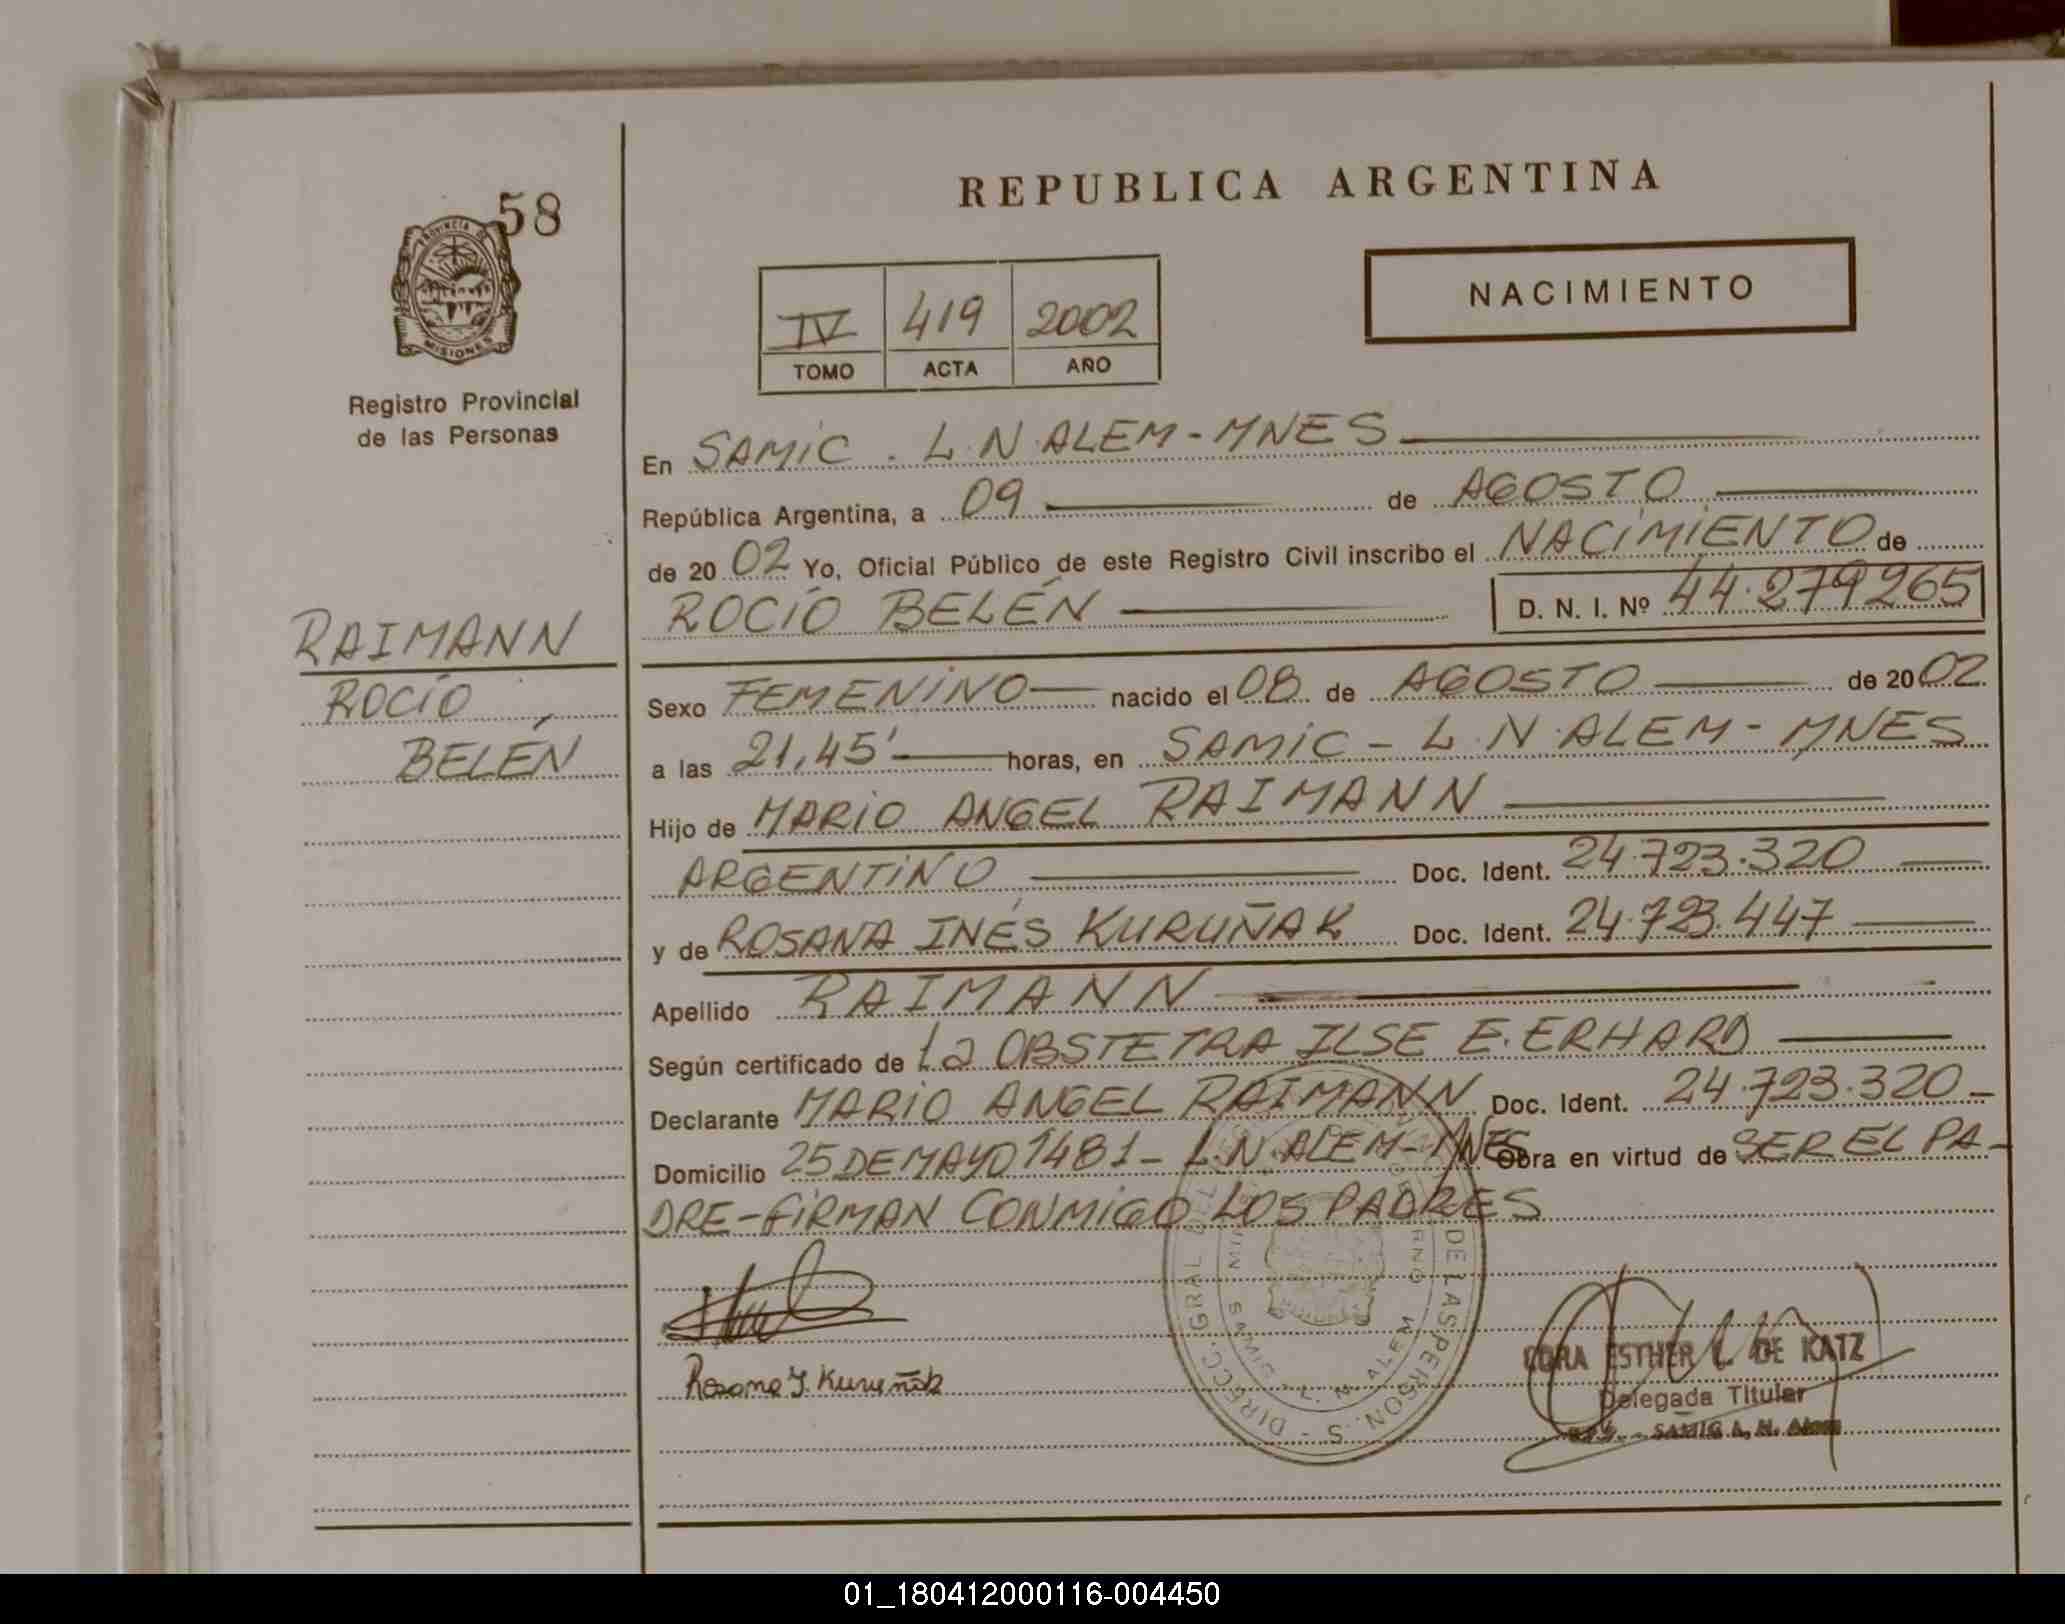 REPUBLICA ARGENTINA
58
PROVINCIA DE
MISIONES
Registro Provincial
de las Personas
NACIMIENTO
IV 419 2002
TOMO ACTA AÑO
En SAMIC. L.N.ALEM-MNES
República Argentina, a 09 de AGOSTO
de 2002 Yo, Oficial Público de este Registro Civil inscribo el NACIMIENTO de
ROCÍO BELÉN D. N. I. Nº 44.279265
RAIMANN
ROCÍO
BELÉN
Sexo FEMENINO nacido el 08 de AGOSTO de 2002
a las 21,45' horas, en SAMIC - L.N.ALEM - MNES
Hijo de MARIO ANGEL RAIMANN
ARGENTINO Doc. Ident. 24.723.320
y de ROSANA INÉS KURUÑAK Doc. Ident. 24.723.447
Apellido RAIMANN
Según certificado de La OBSTETRA ILSE E. ERHARD
Declarante MARIO ANGEL RAIMANN Doc. Ident. 24.723.320-
Domicilio 25 DE MAYO 1481- L.N.ALEM-MNES Obra en virtud de SER EL PA-
DRE-FIRMAN CONMIGO LOS PADRES
Rosana I. Kuruñak
DIRECC. GRAL DEL DE LAS PERSON. S. -
SAMIC L. N. ALEM
CORA ESTHER L. DE KATZ
Delegada Titular
SAMIC L. N. Alem
01_180412000116-004450